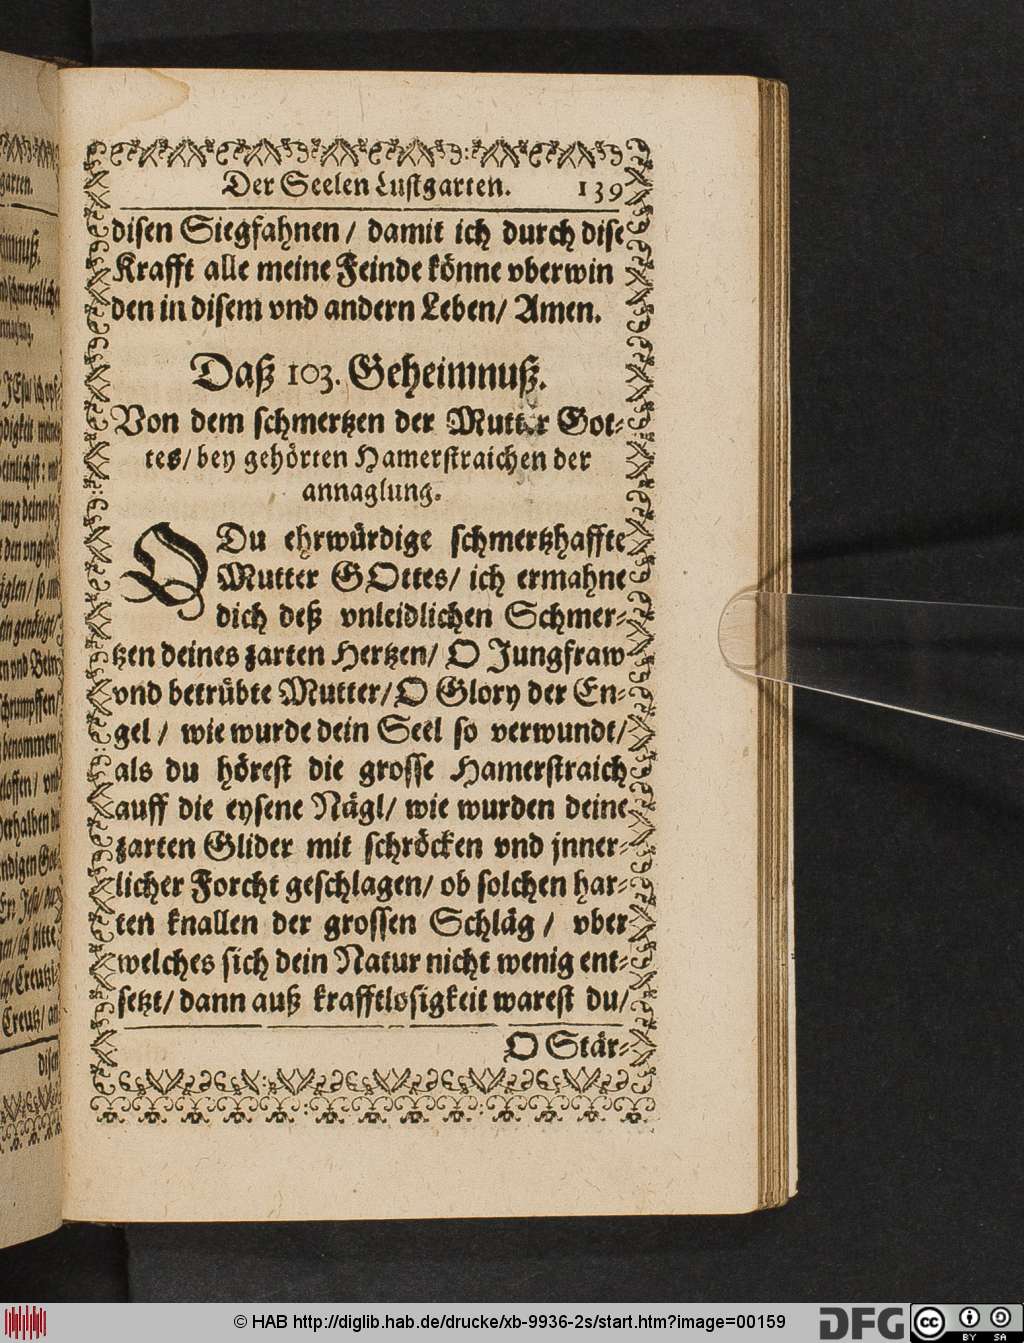 Der Seelen Lustgarten. 139
disen Siegfahnen / damit ich durch dise
Krafft alle meine Feinde könne vberwin
den in disem vnd andern Leben / Amen.
Daß 103. Geheimnuß.
Von dem schmertzen der Mutter Got-
tes / bey gehörten Hamerstraichen der
annaglung.
O Du ehrwürdige schmertzhaffte
Mutter GOttes / ich ermahne
dich deß vnleidlichen Schmer-
tzen deines zarten Hertzen / O Jungfraw
vnd betrübte Mutter / O Glory der En-
gel / wie wurde dein Seel so verwundt /
als du hörest die grosse Hamerstraich
auff die eysene Nägl / wie wurden deine
zarten Glider mit schröcken vnd jnner-
licher Forcht geschlagen / ob solchen har-
ten knallen der grossen Schläg / vber
welches sich dein Natur nicht wenig ent-
setzt / dann auß krafftlosigkeit warest du /
O Stär-
© HAB http://diglib.hab.de/drucke/xb-9936-2s/start.htm?image=00159
DFG
cc BY SA